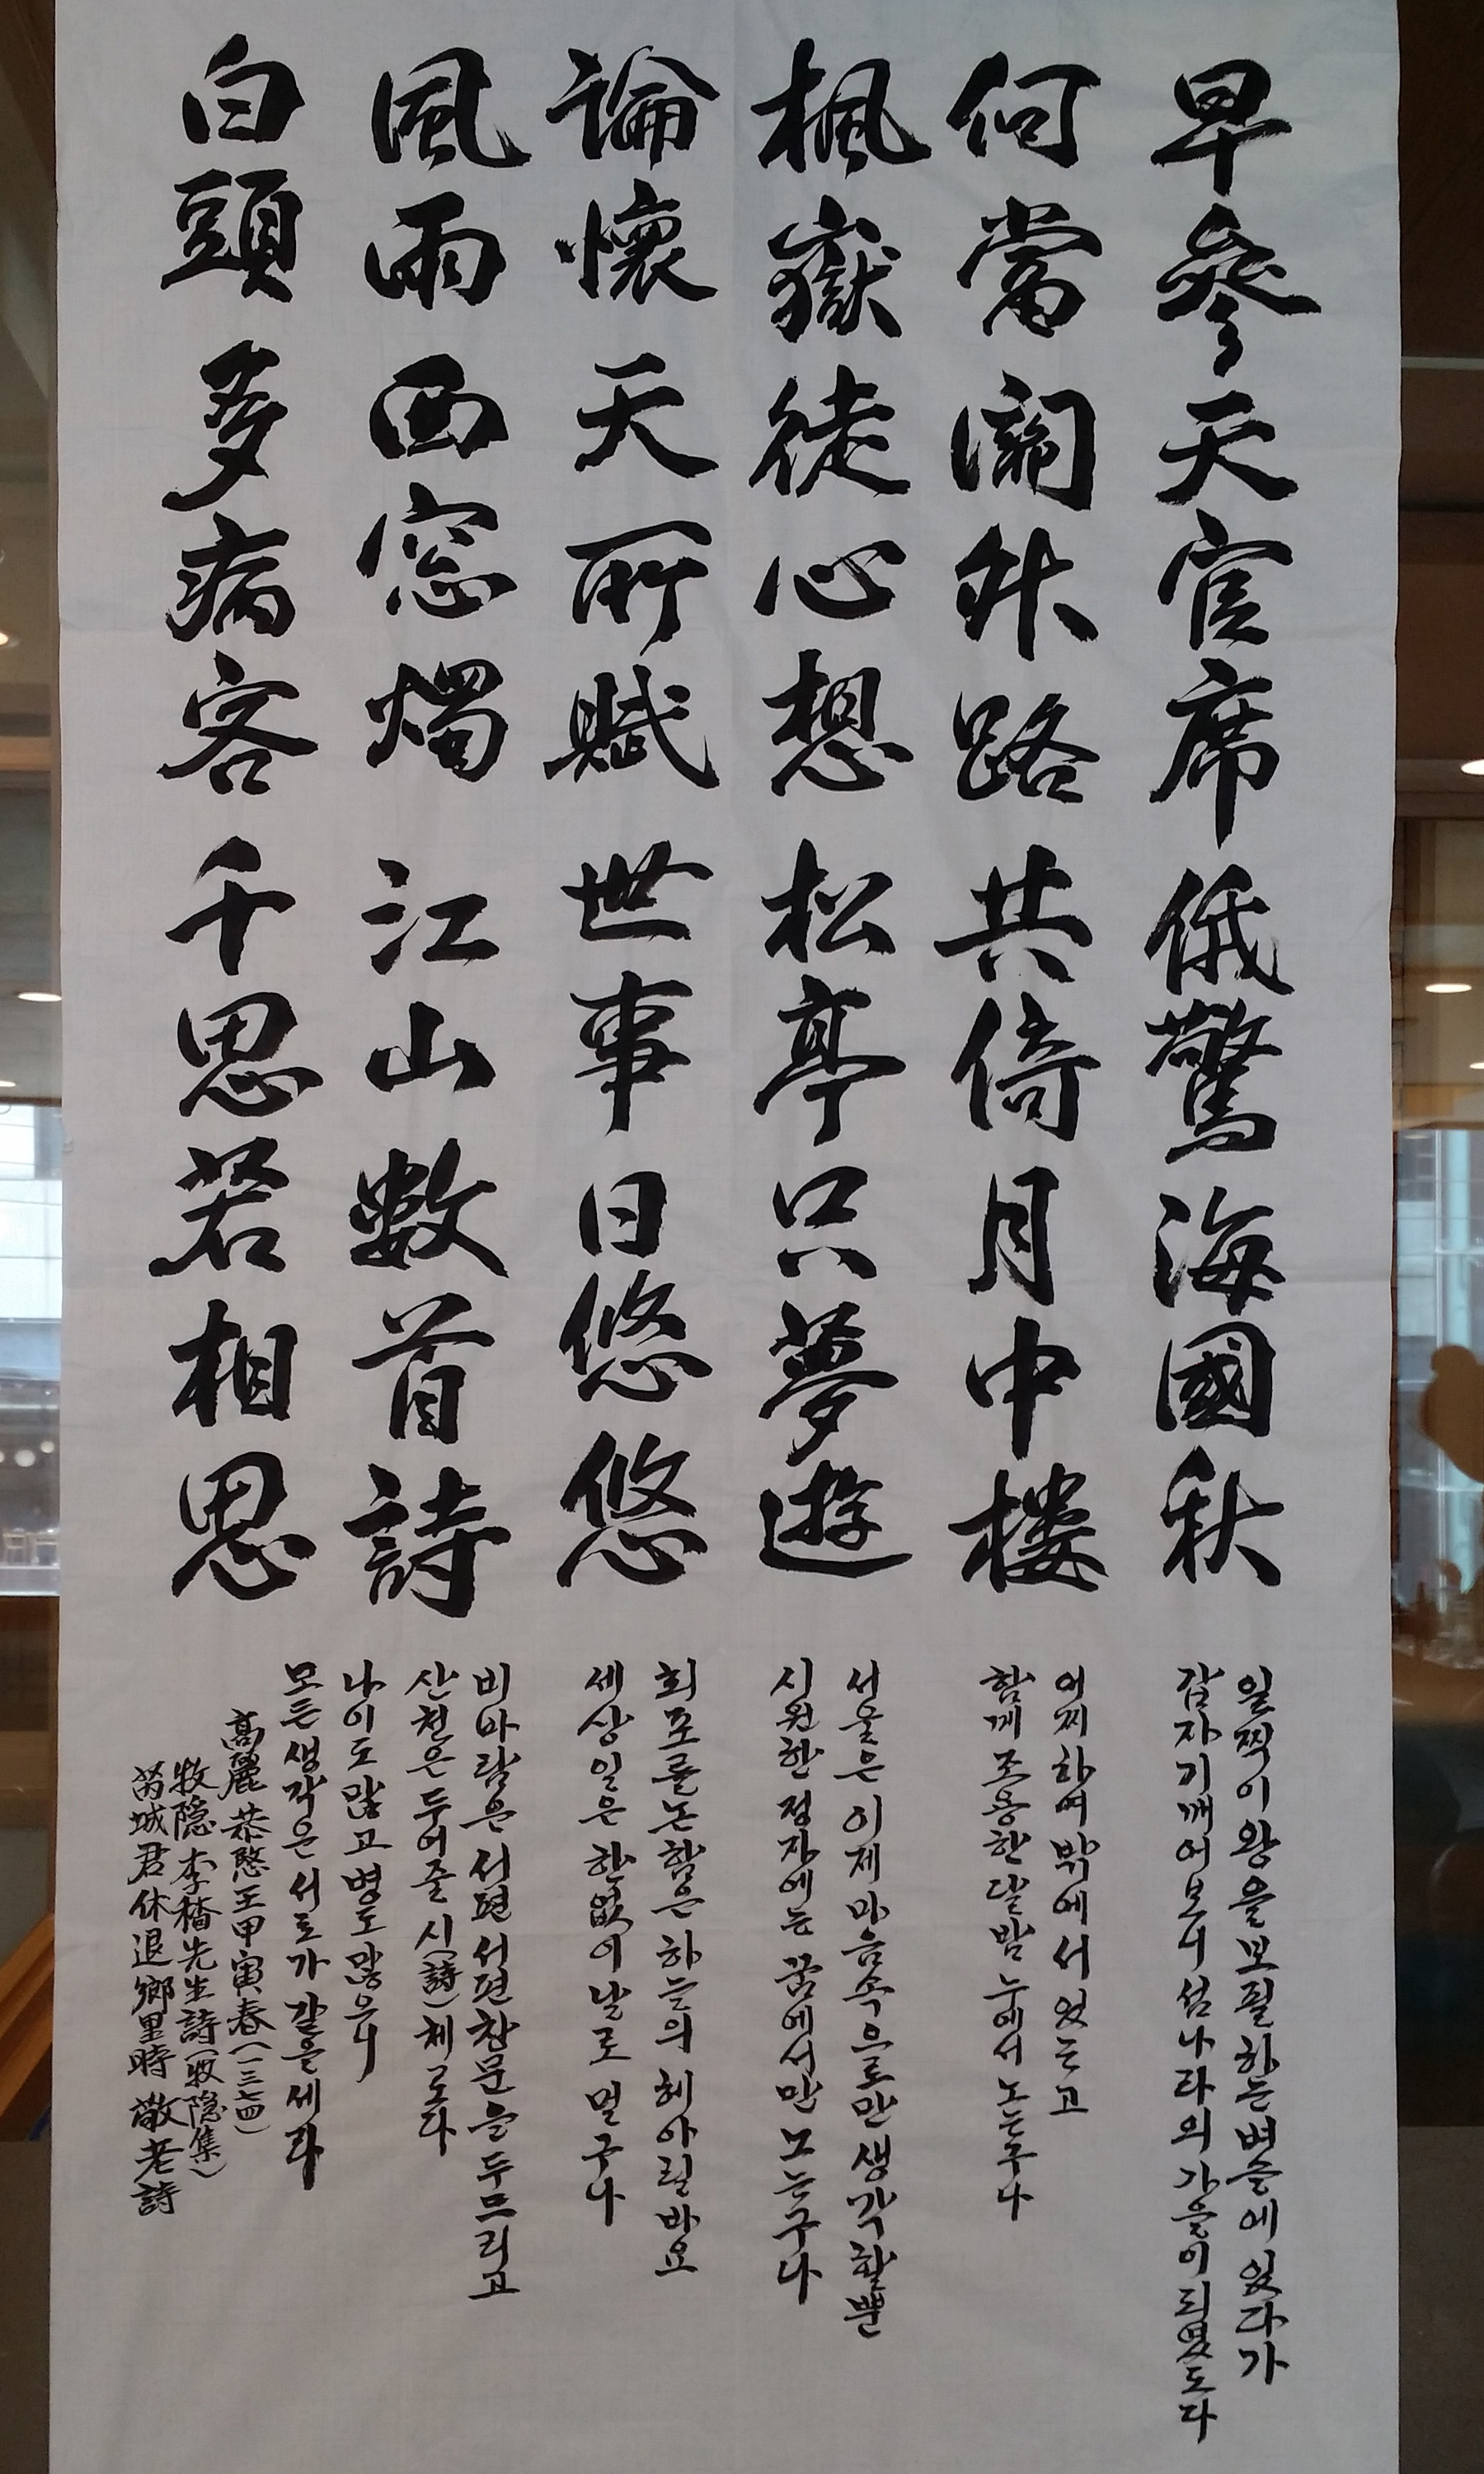 早參天官席俄驚海國秋
何當關外路共倚月中樓
楓嶽徒心想松亭只夢遊
論懷天所賦世事日悠悠
風雨西窓燭江山數首詩
白頭多病客千思若相思
일찍이 왕을 보필하는 벼슬에 있다가
갑자기 깨어보니 섬나라의 가을이 되였도다
어찌하여 밖에 서 있는고
함께 조용한 달밤 누에서 노는구나
서울은 이제 마음속으로만 생각할뿐
시원한 정자에는 꿈에서만 노는구나
회포를 논함은 하늘의 헤아릴 바요
세상일은 한없이 날로 멀구나
비바람은 서편 서편 창문을 두드리고
산천은 두어줄 시(詩)체로다
나이도 많고 병도 많으니
모든 생각은 서로가 같을세라
高麗 恭愍王甲寅春(一三七四)
牧隱 李穡先生詩(牧隱集)
芮城君休退鄉里時 敬老詩